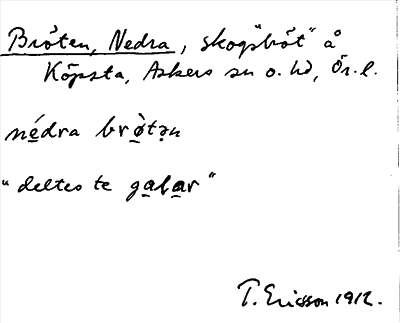 Bröten, Nedra, skog "bröt" å
Köpsta, Askers sn o. hd, Ör. l.
nédra brö̀tən
"deltes te gabar"
T. Ericsson 1912.